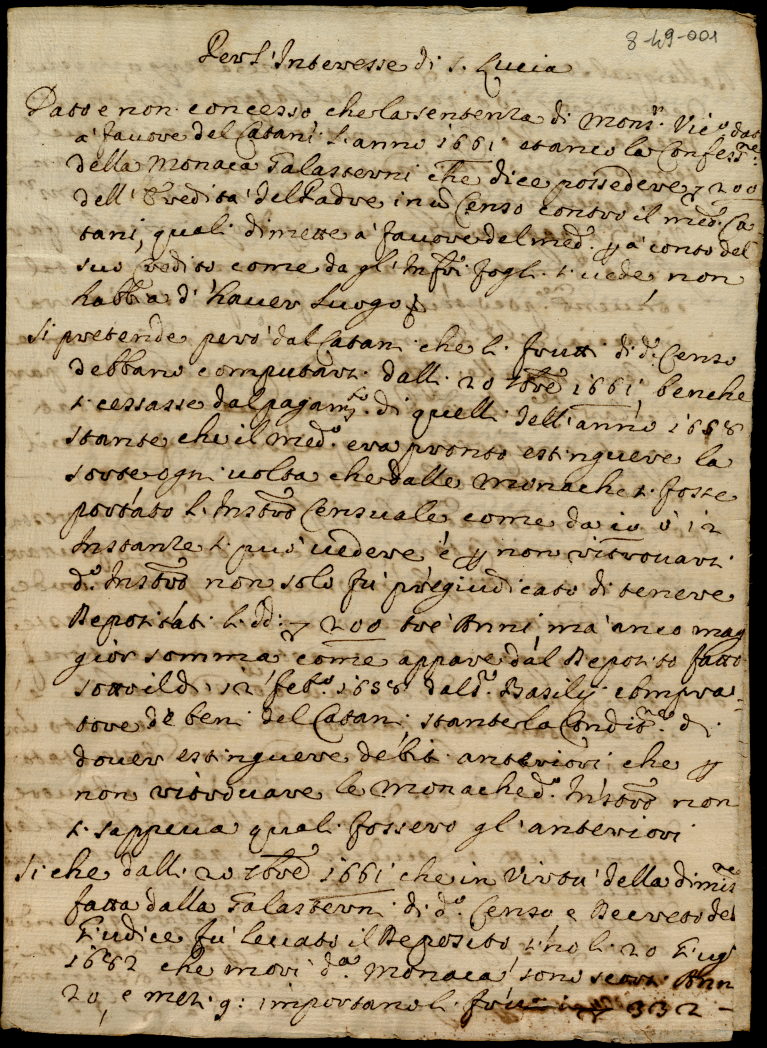 8-49-001
Per l'Interesse di S. Lucia
Dato e non concesso che la sentenza di Mons.r Vic.o data
a' favore del Catani l'anno 1661 stanco la Confess.ne
della Monaca Galasterni che dice possedere 200
dell'Eredita' del Padre in Censo contro il med.o Ca
tani, quali dimette a' favore del med.o p a' conto del
suo Credito come da gl'Infri fogli si vede, non
habbia d'haver luogo
Si pretende pero' dal Catani che li frutti di d.o Censo
debbano computarsi dalli 20 8bre 1661, benche
si cessasse dal pagam.to di quelli dell'anno 1658
stante che il med.o era pronto estinguere la
sorte ogni volta che dalle Monache si fosse
portato l'Instro Censuale come da 10 o' 12
Instanze si puo' vedere e' p non ritrovarsi
d.o Instro non solo fu' pregiudicato di tenere
Depositati li dd: 200 tre' Anni ma' anco mag
gior somma come appare dal Deposito fatto
sotto il di 12 feb.o 1658 dal S.r Basilij compra-
tore de beni del Catani stante la Condit.ne di
dover estinguere debiti anteriori che p
non ritrovare le Monache d.o Instro non
si sappeva quali fossero gl'anteriori
Si che dalli 20 8bre 1661 che in virtu' della dimis.ne
fatta dalla Galasterni di d.o Censo e Decreto del
Giudice fu' levato il Deposito sino li 20 Giug
1682 che mori' d.a Monaca sono scorsi Ann
20, e mesi 9: importano li frutti 332 -